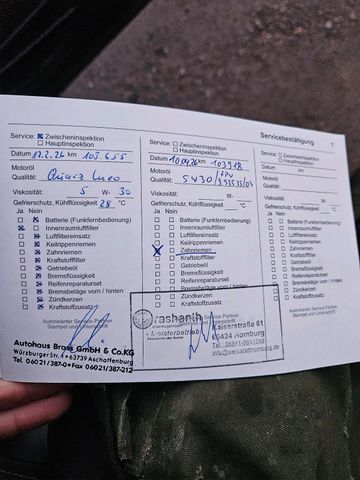 Servicebestätigung 7
Service: Zwischeninspektion
Hauptinspektion
Datum 17.2.26 km 103.655
Motoröl
Qualität: Quarz Ineo
Viskosität: 5 W- 30
Gefrierschutz, Kühlflüssigkeit 28 °C
Ja Nein
Batterie (Funkfernbedienung)
Innenraumluftfilter
Luftfiltereinsatz
Keilrippenriemen
Zahnriemen
Kraftstofffilter
Getriebeöl
Bremsflüssigkeit
Reifenreparaturset
Bremsbeläge vorn / hinten
Zündkerzen
Kraftstoffzusatz
Autorisierter Service Partner
Stempel und Unterschrift
Autohaus Brass GmbH & Co.KG
Würzburger Str. 63739 Aschaffenburg
Tel. 06021/387-0 Fax 06021/387-212
Service: Zwischeninspektion
Hauptinspektion
Datum km 103918
Motoröl
Qualität: 5W30
Viskosität: W-
Gefrierschutz, Kühlflüssigkeit °C
Ja Nein
Batterie (Funkfernbedienung)
Innenraumluftfilter
Luftfiltereinsatz
Keilrippenriemen
Zahnriemen
Kraftstofffilter
Getriebeöl
Bremsflüssigkeit
Reifenreparaturset
Bremsbeläge vorn / hinten
Zündkerzen
Kraftstoffzusatz
Service Partner
rashanth
Meisterbetrieb
Kaiserstraße 61
66424 Homburg
Tel. 06841-9941248
info@werkstatthomburg.de
Service: Zwischeninspektion
Hauptinspektion
Datum km
Motoröl
Qualität:
Viskosität: W-
Gefrierschutz, Kühlflüssigkeit °C
Ja Nein
Batterie (Funkfernbedienung)
Innenraumluftfilter
Luftfiltereinsatz
Keilrippenriemen
Zahnriemen
Kraftstofffilter
Getriebeöl
Bremsflüssigkeit
Reifenreparaturset
Bremsbeläge vorn / hinten
Zündkerzen
Kraftstoffzusatz
Autorisierter Service Partner
Stempel und Unterschrift